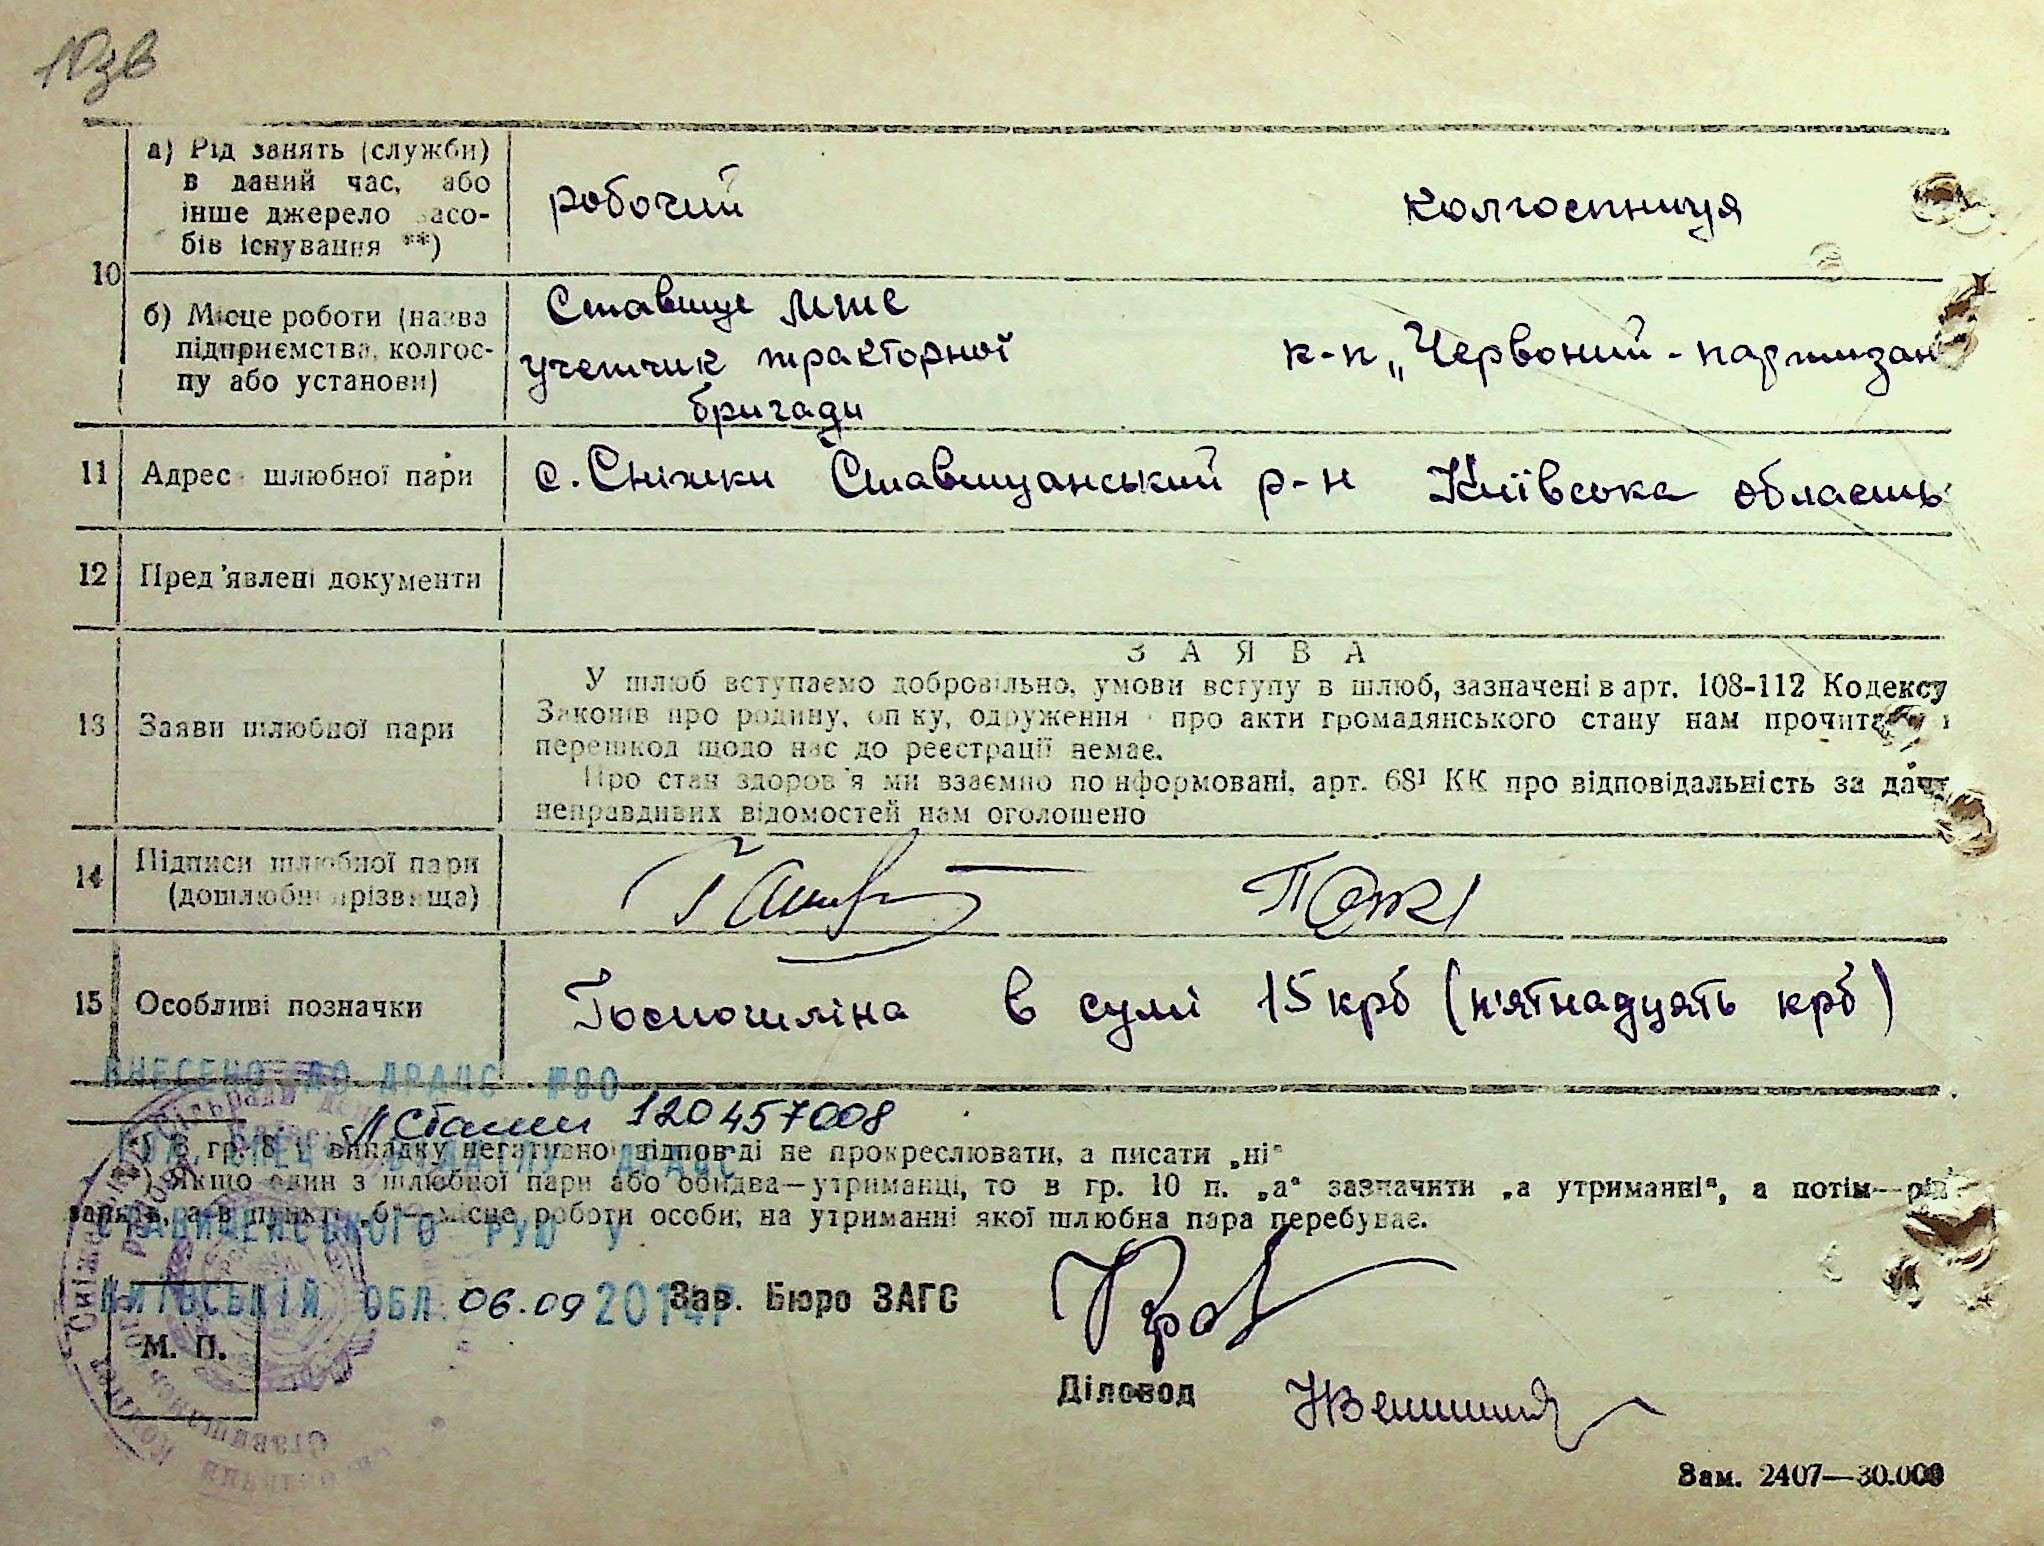 10зв
а) Рід занять (служби)
в даний час, або
інше джерело засо-
бів існування **)
робочий
колгоспниця
10
б) Місце роботи (назва
підприємства, колгос-
пу або установи)
Ставище МТС
учетчик тракторної
бригади
к-п „Червоний - партизан
11
Адрес шлюбної пари
с. Сніжки Ставищанський р-н Київська область
12
Пред'явлені документи
13
Заяви шлюбної пари
ЗАЯВА
У шлюб вступаємо добровільно, умови вступу в шлюб, зазначені в арт. 108-112 Кодексу
Законів про родину, опіку, одруження і про акти громадянського стану нам прочитані і
перешкод щодо нас до реєстрації немає.
Про стан здоров'я ми взаємно поінформовані, арт. 68¹ КК про відповідальність за дачу
неправдивих відомостей нам оголошено
14
Підписи шлюбної пари
(дошлюбні прізвища)
15
Особливі позначки
Госпошліна в сумі 15 крб (п'ятнадцять крб)
ВНЕСЕНО ДО ДРАЦС №80
120457008
*) В гр. 8 у випадку негативної відповіді не прокреслювати, а писати „ні“
**) Якщо один з шлюбної пари або обидва—утриманці, то в гр. 10 п. „а“ зазначити „а утриманні“, а потім—рід
занять, а в пункті „б“—місце роботи особи, на утриманні якої шлюбна пара перебуває.
СТАВИЩЕНСЬКОГО РУЮ У
КИЇВСЬКІЙ ОБЛ. 06.09 2014р
Зав. Бюро ЗАГС
М. П.
Діловод
Зам. 2407—30.000